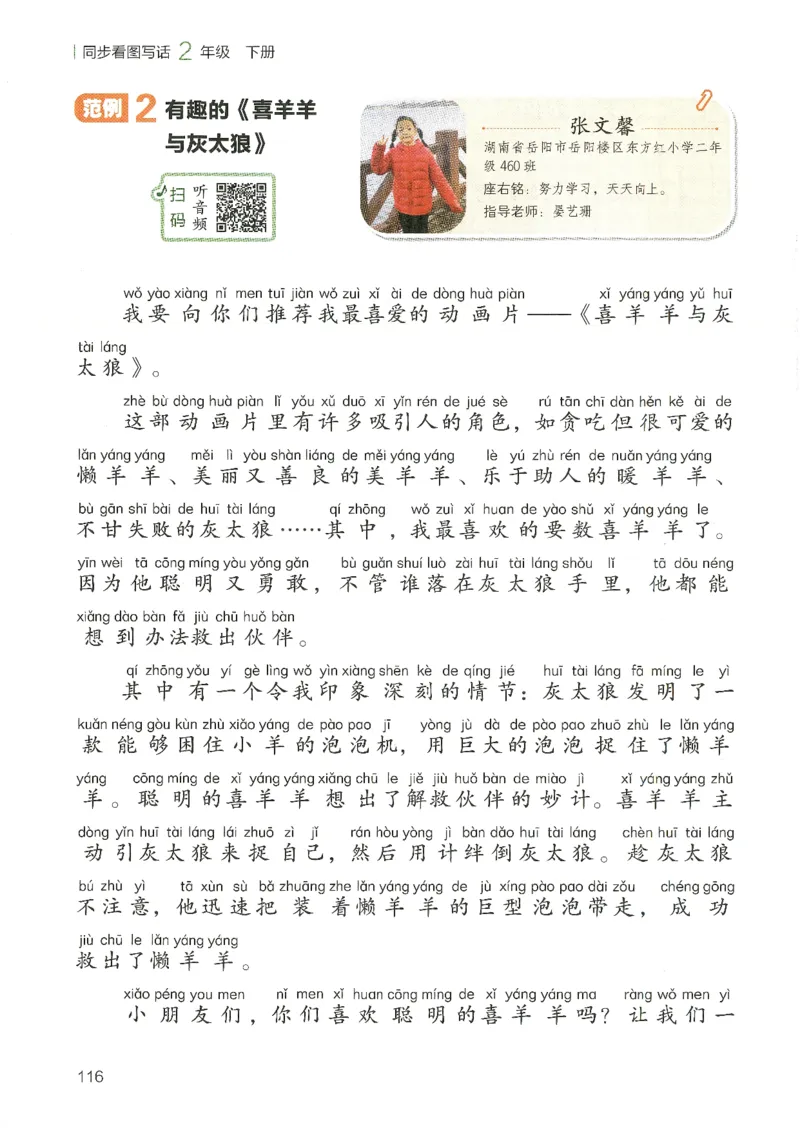 同步看图写话 2 年级 下册
范例 2 有趣的《喜羊羊
与灰太狼》
扫码
听音频
张文馨
湖南省岳阳市岳阳楼区东方红小学二年
级 460 班
座右铭：努力学习，天天向上。
指导老师：晏艺珊
wǒ yào xiàng nǐ men tuī jiàn wǒ zuì xǐ ài de dòng huà piàn xǐ yáng yáng yǔ huī
我要向你们推荐我最喜爱的动画片——《喜羊羊与灰
tài láng
太狼》。
zhè bù dòng huà piàn lǐ yǒu xǔ duō xī yǐn rén de jué sè rú tān chī dàn hěn kě ài de
这部动画片里有许多吸引人的角色，如贪吃但很可爱的
lǎn yáng yáng měi lì yòu shàn liáng de měi yáng yáng lè yú zhù rén de nuǎn yáng yáng
懒羊羊、美丽又善良的美羊羊、乐于助人的暖羊羊、
bù gān shī bài de huī tài láng qí zhōng wǒ zuì xǐ huan de yào shǔ xǐ yáng yáng le
不甘失败的灰太狼……其中，我最喜欢的要数喜羊羊了。
yīn wèi tā cōng míng yòu yǒng gǎn bù guǎn shuí luò zài huī tài láng shǒu lǐ tā dōu néng
因为他聪明又勇敢，不管谁落在灰太狼手里，他都能
xiǎng dào bàn fǎ jiù chū huǒ bàn
想到办法救出伙伴。
qí zhōng yǒu yí gè lìng wǒ yìn xiàng shēn kè de qíng jié huī tài láng fā míng le yì
其中有一个令我印象深刻的情节：灰太狼发明了一
kuǎn néng gòu kùn zhù xiǎo yáng de pào pao jī yòng jù dà de pào pao zhuō zhù le lǎn yáng
款能够困住小羊的泡泡机，用巨大的泡泡捉住了懒羊
yáng cōng míng de xǐ yáng yáng xiǎng chū le jiě jiù huǒ bàn de miào jì xǐ yáng yáng zhǔ
羊。聪明的喜羊羊想出了解救伙伴的妙计。喜羊羊主
dòng yǐn huī tài láng lái zhuō zì jǐ rán hòu yòng jì bàn dǎo huī tài láng chèn huī tài láng
动引灰太狼来捉自己，然后用计绊倒灰太狼。趁灰太狼
bú zhù yì tā xùn sù bǎ zhuāng zhe lǎn yáng yáng de jù xíng pào pao dài zǒu chéng gōng
不注意，他迅速把装着懒羊羊的巨型泡泡带走，成功
jiù chū le lǎn yáng yáng
救出了懒羊羊。
xiǎo péng you men nǐ men xǐ huan cōng míng de xǐ yáng yáng ma ràng wǒ men yì
小朋友们，你们喜欢聪明的喜羊羊吗？让我们一
116